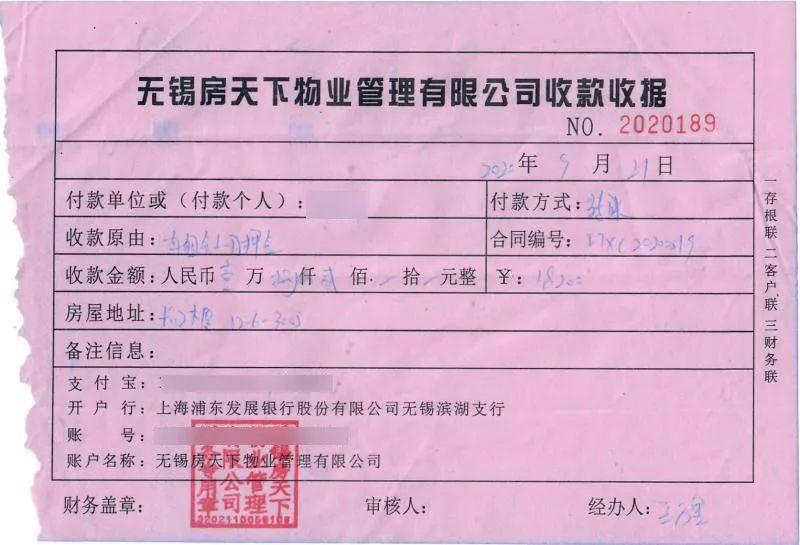 无锡房天下物业管理有限公司收款收据
NO. 2020189
2020年 9 月 21 日
付款单位或（付款个人）：
付款方式：转账
收款原由：
合同编号：
收款金额：人民币 壹 万 捌 仟 贰 佰 拾 元整
￥：18200
房屋地址：
备注信息：
支 付 宝：
开 户 行：上海浦东发展银行股份有限公司无锡滨湖支行
账 号：
账户名称：无锡房天下物业管理有限公司
财务盖章：
审核人：
经办人：
一存根联 二客户联 三财务联
无锡房天下物业管理有限公司财务专用章